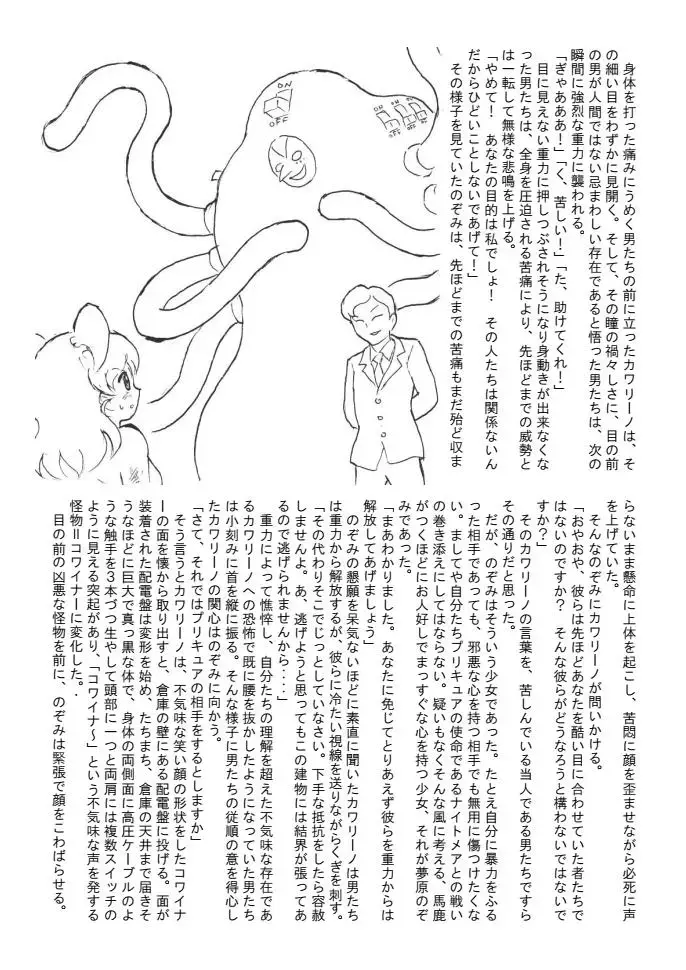 身体を打った痛みにうめく男たちの前に立ったカワリーノは、そ
の細い目をわずかに見開く。そして、その瞳の禍々しさに、目の前
の男が人間ではない忌まわしい存在であると悟った男たちは、次の
瞬間に強烈な重力に襲われる。
「ぎゃあああ!」「く、苦しい!」「た、助けてくれ!」
目に見えない重力に押しつぶされそうになり身動きが出来なくな
った男たちは、全身を圧迫される苦痛により、先ほどまでの威勢と
は一転して無様な悲鳴を上げる。
「やめて! あなたの目的は私でしょ! その人たちは関係ないん
だからひどいことしないであげて!」
その様子を見ていたのぞみは、先ほどまでの苦痛もまだ殆ど収ま
ON
OFF
ON
OFF
らないまま懸命に上体を起こし、苦悶に顔を歪ませながら必死に声
を上げていた。
そんなのぞみにカワリーノが問いかける。
「おやおや、彼らは先ほどあなたを酷い目に合わせていた者たちで
はないのですか? そんな彼らがどうなろうと構わないではないで
すか?」
そのカワリーノの言葉を、苦しんでいる当人である男たちですら
その通りだと思った。
だが、のぞみはそういう少女であった。たとえ自分に暴力をふる
った相手であっても、邪悪な心を持つ相手でも無用に傷つけたくな
い。ましてや自分たちプリキュアの使命であるナイトメアとの戦い
の巻き添えにしてはならない。疑いもなくそんな風に考える、馬鹿
がつくほどにお人好しでまっすぐな心を持つ少女、それが夢原のぞ
みであった。
「まあわかりました。あなたに免じてとりあえず彼らを重力からは
解放してあげましょう」
のぞみの懇願を呆気ないほどに素直に聞いたカワリーノは男たち
は重力から解放するが、彼らに冷たい視線を送りながらくぎを刺す。
「その代わりそこでじっとしていなさい。下手な抵抗をしたら容赦
しませんよ。あ、逃げようと思ってもこの建物には結界が張ってあ
るので逃げられませんから・・・」
重力によって憔悴し、自分たちの理解を超えた不気味な存在であ
るカワリーノへの恐怖で既に腰を抜かしたようになっていた男たち
は小刻みに首を縦に振る。そんな様子に男たちの従順の意を得心し
たカワリーノの関心はのぞみに向かう。
「さて、それではプリキュアの相手をするとしますか」
そう言うとカワリーノは、不気味な笑い顔の形状をしたコワイナ
ーの面を懐から取り出すと、倉庫の壁にある配電盤に投げる。面が
装着された配電盤は変形を始め、たちまち、倉庫の天井まで届きそ
うなほどに巨大で真っ黒な体で、身体の両側面に高圧ケーブルのよ
うな触手を3本づつ生やして頭部に一つと両肩には複数スイッチの
ように見える突起があり、「コワイナ~」という不気味な声を発する
怪物=コワイナーに変化した。.
目の前の凶悪な怪物を前に、のぞみは緊張で顔をこわばらせる。